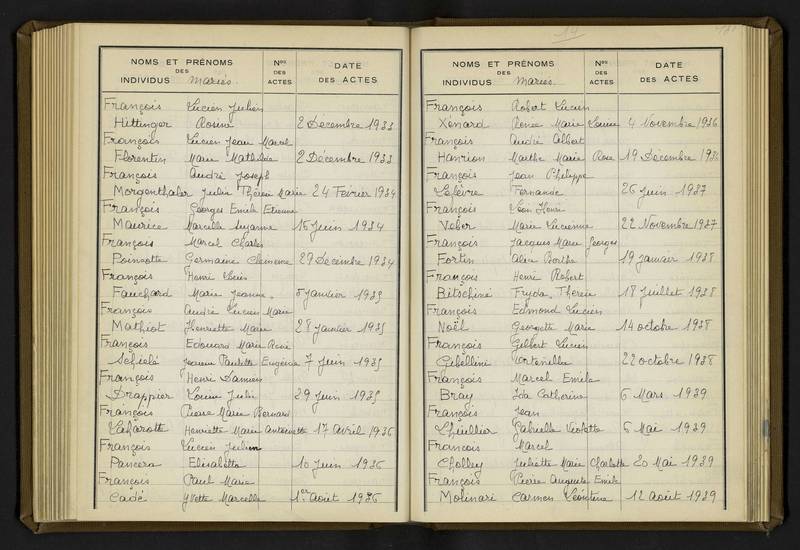 NOMS ET PRÉNOMS
DES
INDIVIDUS Mariés
Nos
DES
ACTES
DATE
DES ACTES
François Lucien Julien
Hittinger Rosine 2 Décembre 1933
François Lucien Jean Marcel
Florentin Marie Mathilde 2 Décembre 1933
François André Joseph
Morgenthaler Julie Thérèse Marie 24 Février 1934
François Georges Emile Etienne
Maurice Marcelle Suzanne 15 Juin 1934
François Marcel Charles
Poinsotte Germaine Clémence 29 Décembre 1934
François Henri Louis
Fauchard Marie Jeanne 5 Janvier 1935
François André Lucien Marie
Mathiot Henriette Marie 28 Janvier 1935
François Edouard Marie René
Schielé Jeanne Paulette Eugénie 7 Juin 1935
François Henri Damien
Drappier Louise Julie 29 Juin 1935
François Pierre Marie Bernard
Laharotte Henriette Marie Antoinette 17 Avril 1936
François Lucien Julien
Pancera Elisabetta 10 Juin 1936
François Paul Marie
Cadé Yvette Marcelle 1er Août 1936
19
NOMS ET PRÉNOMS
DES
INDIVIDUS Mariés
Nos
DES
ACTES
DATE
DES ACTES
François Robert Lucien
Xénard Renée Marie Louise 4 Novembre 1936
François André Albert
Hanrion Marthe Marie Rose 19 Décembre 1936
François Jean Philippe
Lefèvre Fernande 26 Juin 1937
François Léon Henri
Veber Marie Lucienne 22 Novembre 1937
François Jacques Marie Georges
Fortin Alice Berthe 19 Janvier 1938
François Henri Robert
Bitschiné Fryda Thérèse 18 Juillet 1938
François Edmond Lucien
Noël Georgette Marie 14 octobre 1938
François Gilbert Lucien
Gibellini 22 octobre 1938
François Marcel Emile
Bray Ida Catherine 6 Mars 1939
François Jean
Lhuillier Gabrielle Violette 6 Mai 1939
François Marcel
Cholley Juliette Marie Charlotte 20 Mai 1939
François Pierre Auguste Emile
Molinari Carmen Léontine 12 Août 1939